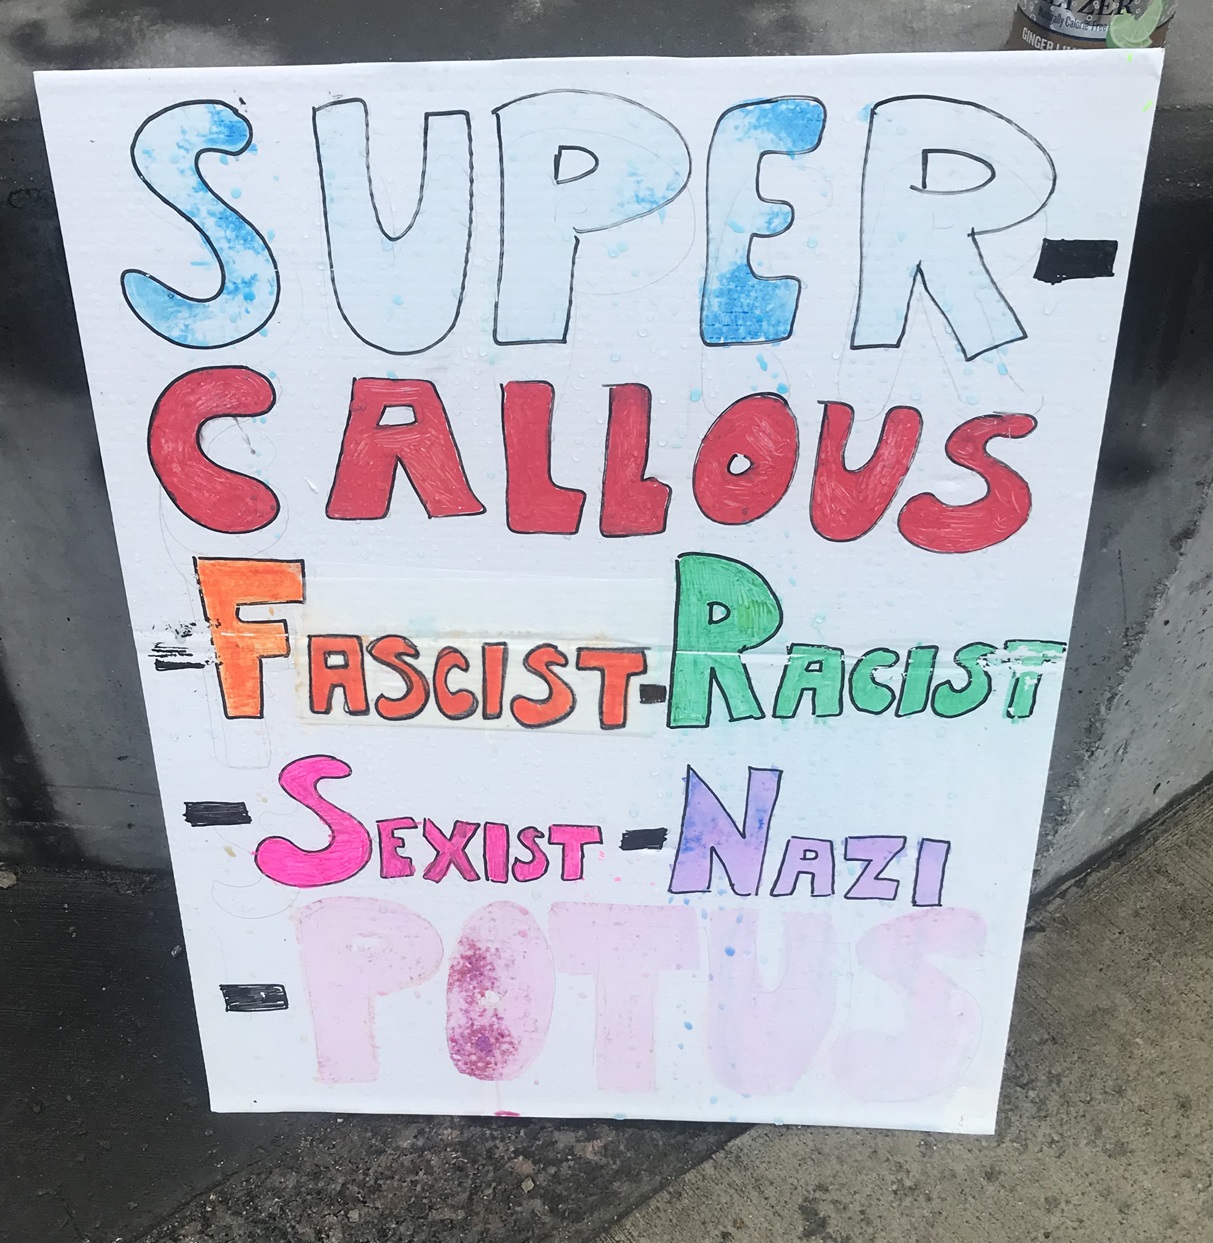 GINGER
SUPER-
CALLOUS
-FASCIST-RACIST
-SEXIST-NAZI
-POTUS